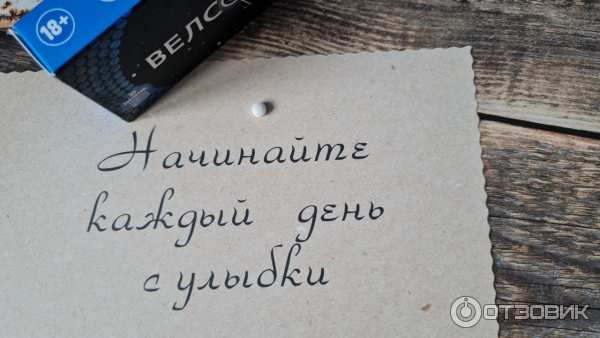 18+
ВЕЛСО
Начинайте
каждый день
с улыбки
ОТЗОВИК